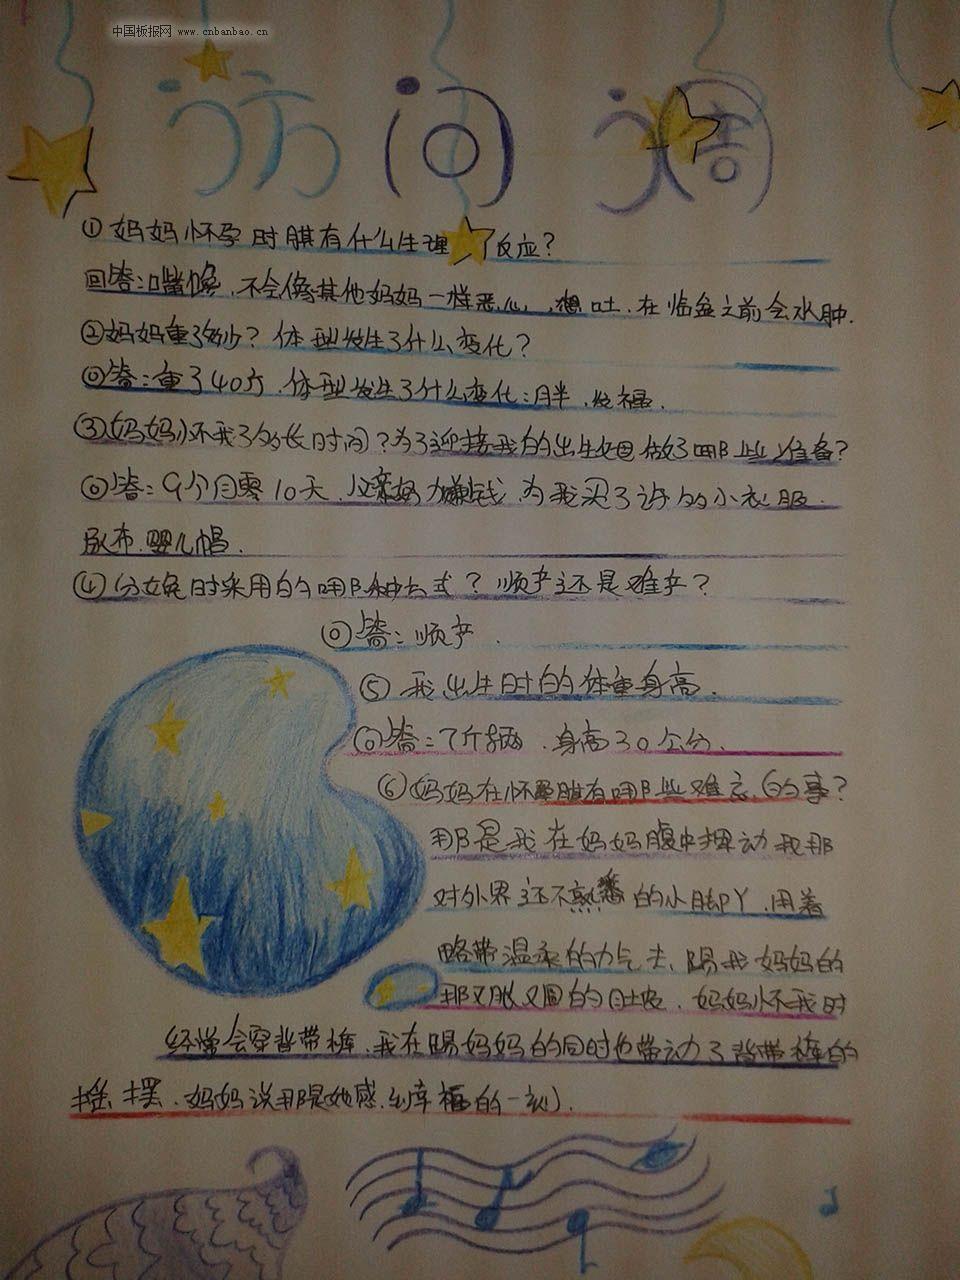 中国板报网 www.cnbanbao.cn
访问调
①妈妈怀孕时期有什么生理反应?
回答:嘴馋,不会像其他妈妈一样恶心,想吐.在临盆之前会水肿.
②妈妈重了多少?体型发生了什么变化?
回答:重了40斤.体型发生了什么变化:胖.发福.
③妈妈怀我了多长时间?为了迎接我的出生做了哪些准备?
回答:9个月零10天.父亲努力赚钱.为我买了许多小衣服.
尿布.婴儿帽.
④分娩时采用的哪种方式?顺产还是难产?
回答:顺产.
⑤我出生时的体重身高.
回答:7斤.身高30公分.
⑥妈妈在怀孕期有哪些难忘的事?
那是我在妈妈腹中挥动我那
对外界还不熟悉的小脚丫.用着
略带温柔的力气去踢我妈妈的
那又胀又圆的肚皮.妈妈怀我时
经常会穿背带裤.我在踢妈妈的同时也带动了背带裤的
摇摆.妈妈说那是她感到幸福的一刻.